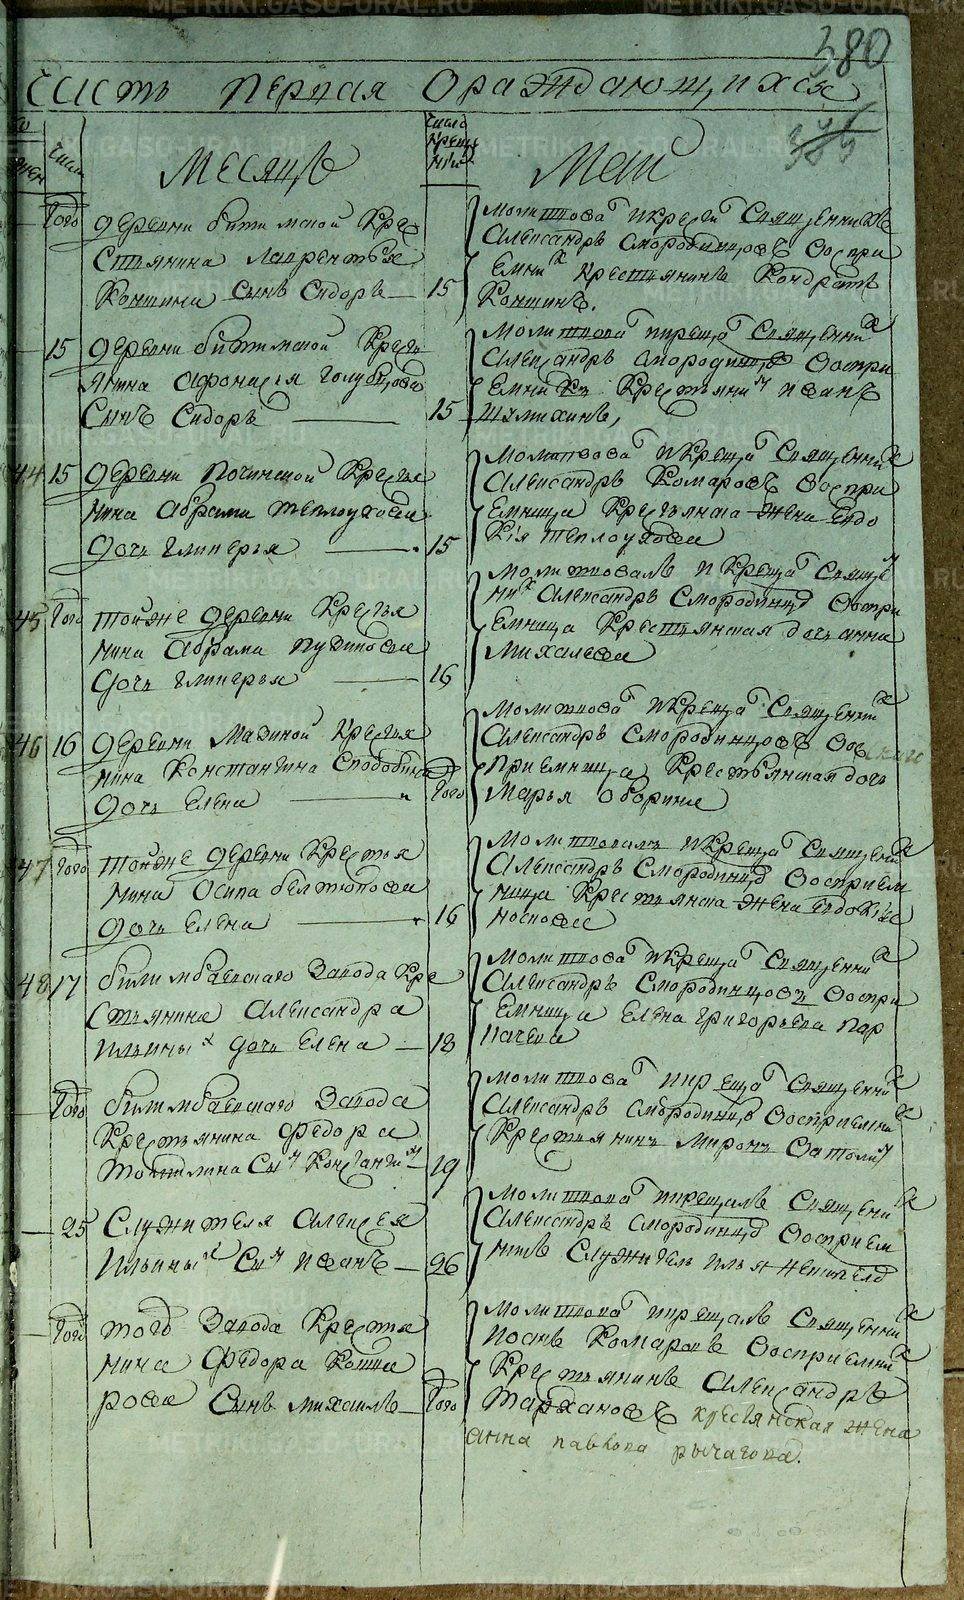 380
Часть Первая О раждающихся
385
Число
Число крещения
Месяцъ
Май
Того
деревни битимской Кре
стьянина Лаврентья
Коншина сынъ Сидоръ 15
Молитвова и крести Священникъ
Александръ Смородинцовъ Воспри
емник крестьянинъ Кондратъ
Коншинъ.
15 деревни битимской Кресть
янина Афонасья голубцова
Сынъ Сидоръ 15
Молитвова и креща Священник
Александръ Смородинцов Воспри
емникъ Крестьянин Иванъ
Шумихинъ,
44 15 деревни Починской Кресья
нина Абрама теплоухова
дочь Гликерья 15
Молитвова и Креща Священник
Александръ Комаровъ Воспри
емница Кресьянска Жена Евдо
кія теплоухова
45 Того тойже деревни Кресья
нина Абрама
дочь Гликерья 16
Молитвовалъ и Креща Священ
ник Александръ Смородинцов Воспри
емница Крестьянская дочь анна
Михалева
46 16 деревни Макиной Кресья
нина Константина Сподобина
дочь Елена Того
Молитвова и Креща Священник
Александръ Смородинцовъ Вос
приемница Крестьянская дочь
Марья Оборина
47 Того тойже деревни Кресья
нина Осипа белтюкова
дочь Елена 16
Молитвовалъ и Креща Священик
Александръ Смородинцов Восприем
ница Крестьянска Жена Евдокія
Носкова
48 17 билимбаевскаго Завода Кре
стьянина Александра
Ильиных дочь Елена 18
Молитвова и Креща Священник
Александръ Смородинцовъ Воспри
емница Елена григорьева пар
начева
Того билимбаевскаго Завода
Крестьянина Федора
Сын Константин 19
Молитвова и креща Священник
Александръ Смородинцов Восприемник
Крестьянинъ Миронъ Ватолин
25 Служителя Алексея
Ильиных Сын Иванъ 26
Молитвова и крещалъ Священик
Александръ Смородинцов Восприем
никъ Служитель Илья
Того тогоъ Завода Крестья
нина Федора Кашка
рова Сынъ михаилъ Того
Молитвова и крещалъ Священник
Иоанъ Комаровъ Восприемник
Крестьянинъ Александръ
Тарханов крестянская жена
анна павлова рычагова.